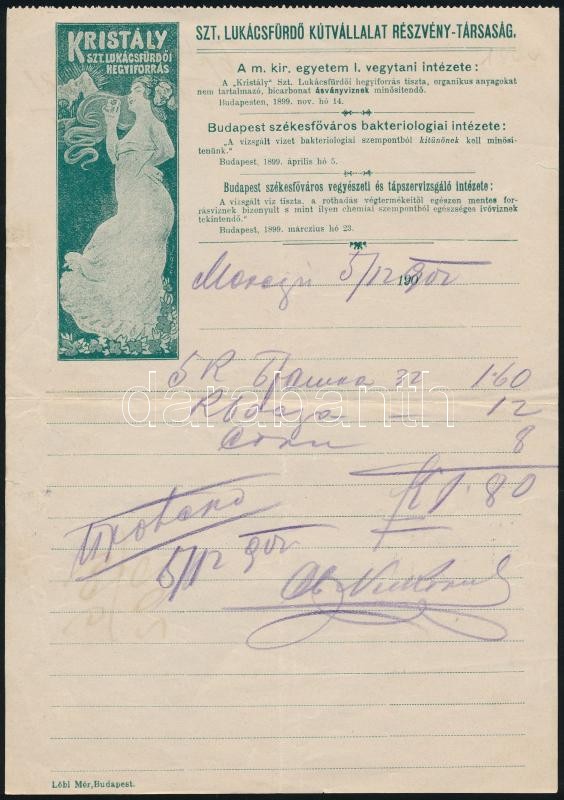 KRISTÁLY
SZT. LUKÁCSFÜRDŐI
HEGYIFORRÁS
SZT. LUKÁCSFÜRDŐ KÚTVÁLLALAT RÉSZVÉNY-TÁRSASÁG.
A m. kir. egyetem I. vegytani intézete:
A „Kristály" Szt. Lukácsfürdői hegyiforrás tiszta, organikus anyagokat
nem tartalmazó, bicarbonat ásványviznek minősitendő.
Budapesten, 1899. nov. hó 14.
Budapest székesfőváros bakteriologiai intézete:
„A vizsgált vizet bakteriologiai szempontból kitünőnek kell minősi-
tenünk."
Budapest, 1899. április hó 5.
Budapest székesfőváros vegyészeti és tápszervizsgáló intézete:
A vizsgált viz tiszta, a rothadás végtermékeitől egészen mentes for-
rásviznek bizonyult s mint ilyen chemiai szempontból egészséges ivóviznek
tekintendő."
Budapest, 1899. márczius hó 23.
5/12 190 902
5 R 32 1·60
12
8
1·80
5/12 902
darabanth
Löbl Mór, Budapest.